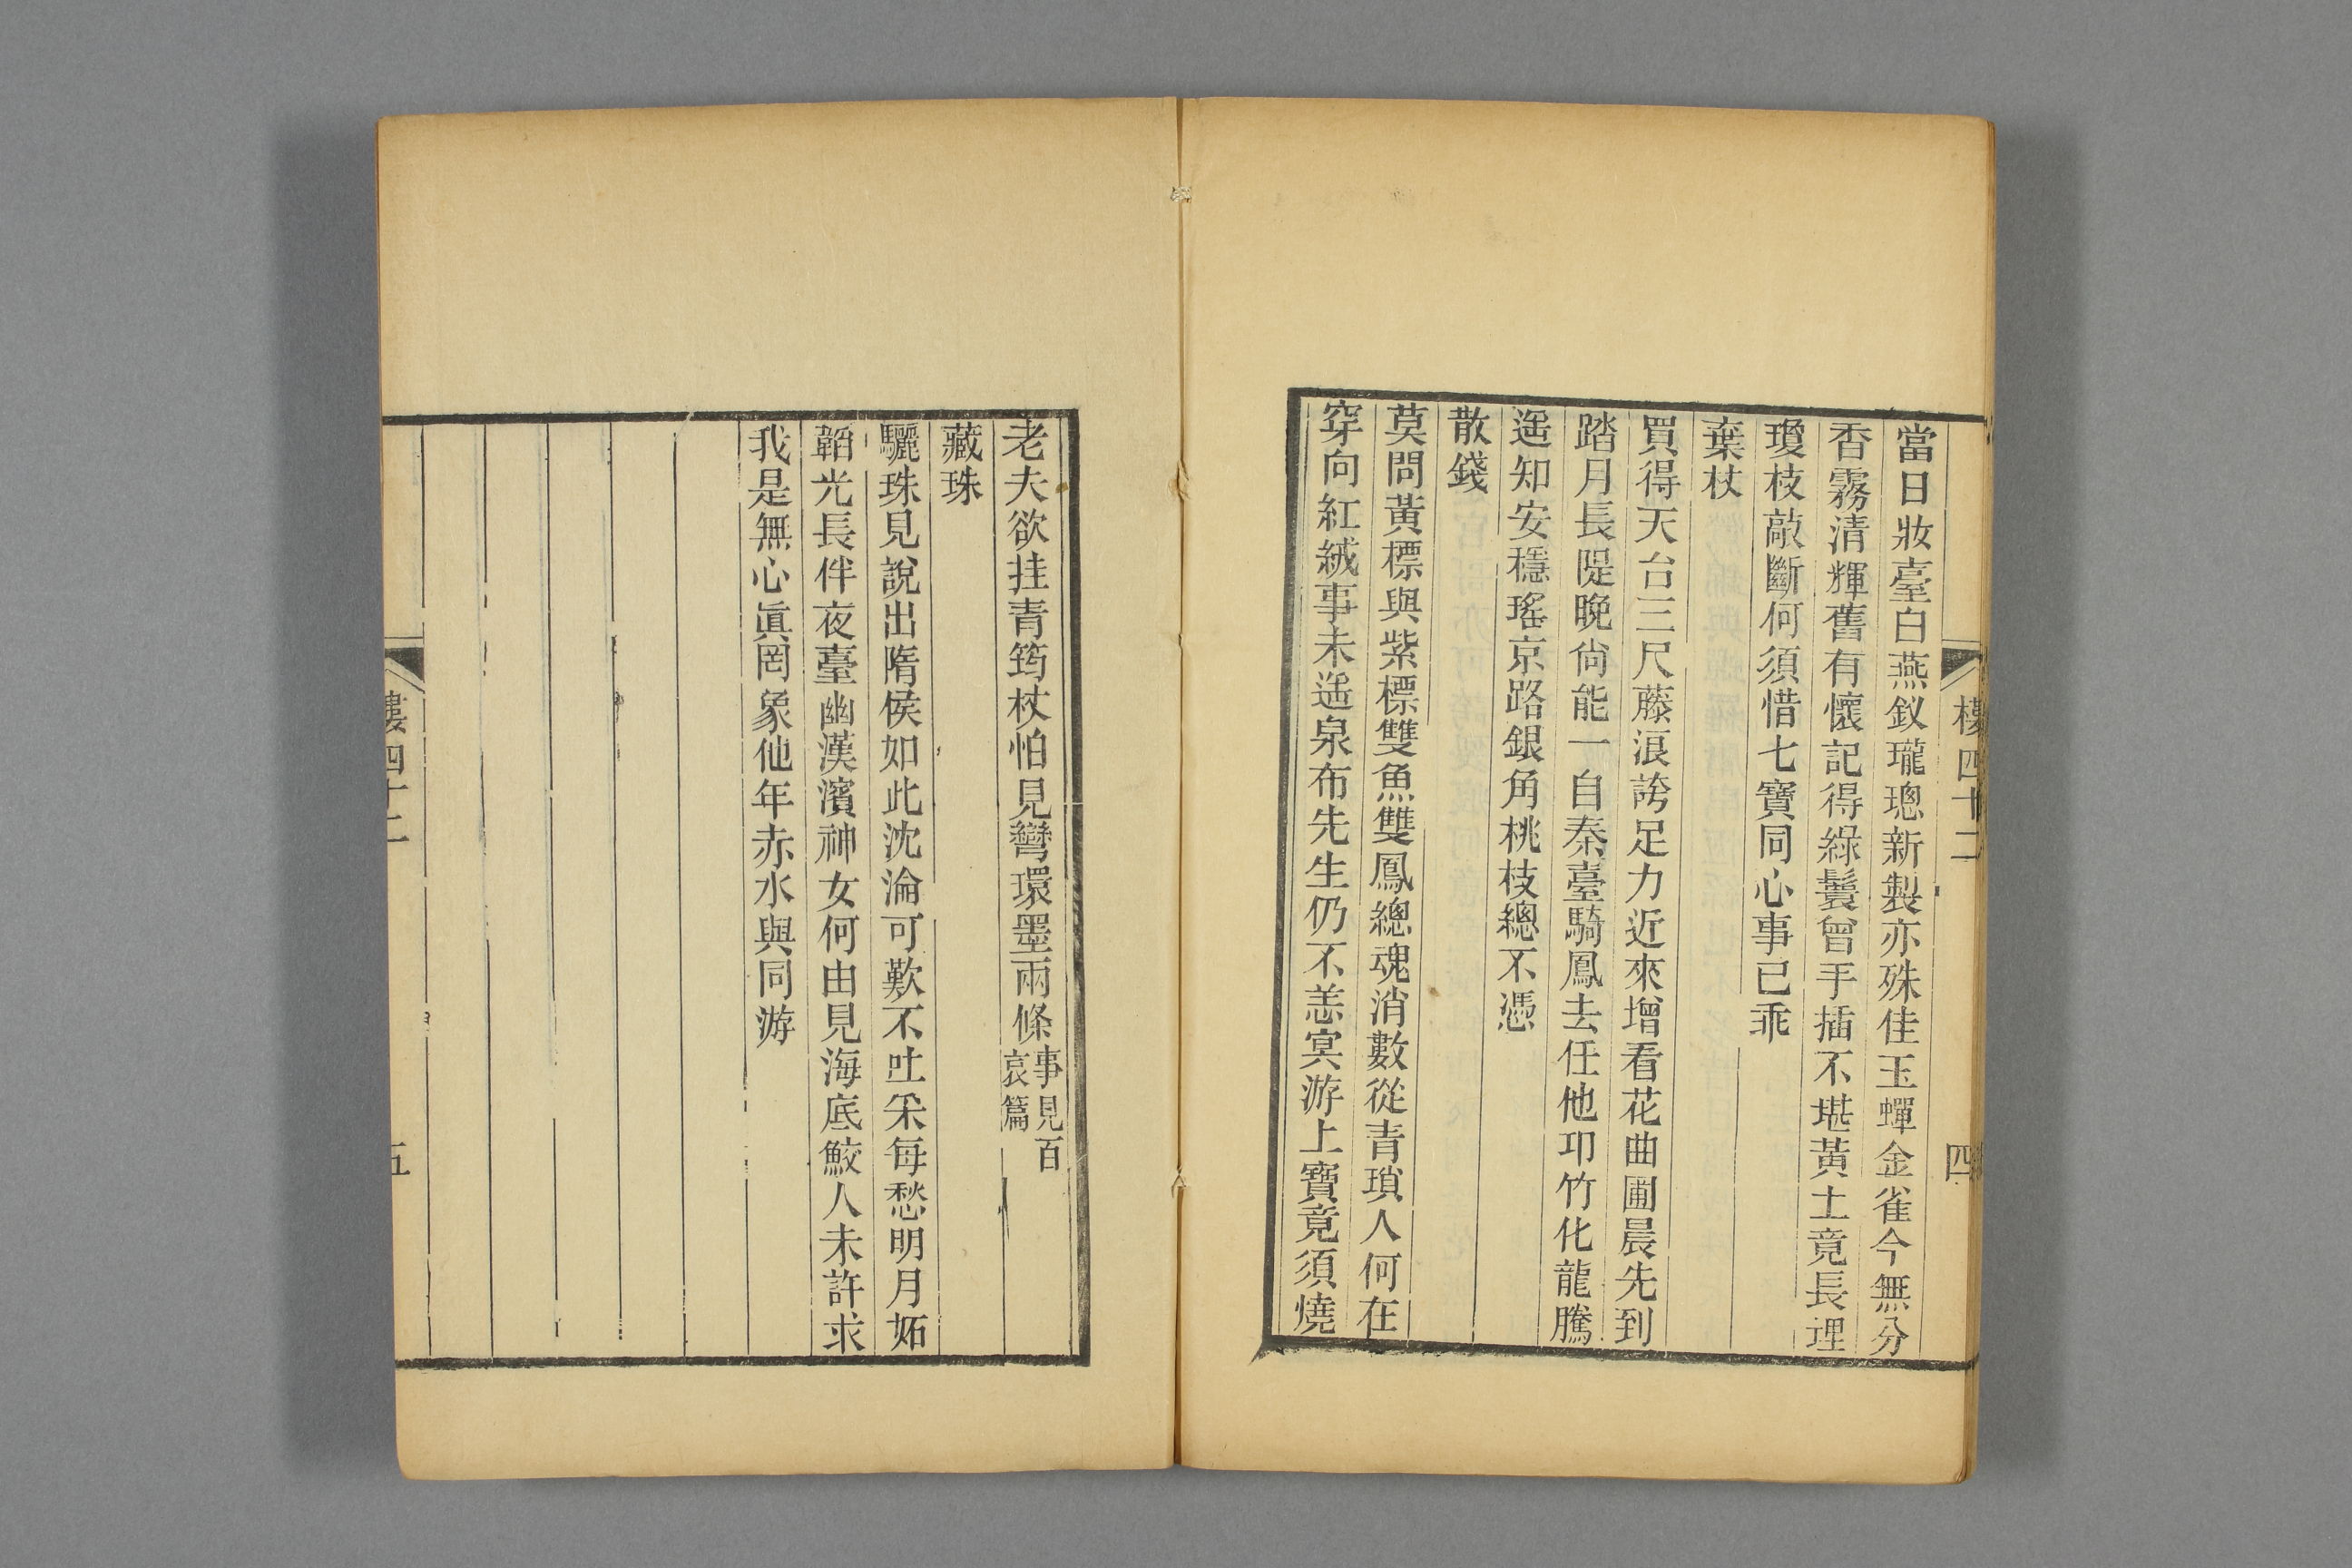 樓四十二
四
當日妝臺白燕釵瓏璁新製亦殊佳玉蟬金雀今無分
香霧清輝舊有懷記得綠鬟曾手插不堪黃土竟長埋
瓊枝敲斷何須惜七寶同心事已乖
棄杖
買得天台三尺藤浪誇足力近來增看花曲圃晨先到
踏月長隄晚尙能一自秦臺騎鳳去任他卭竹化龍騰
遥知安穩瑤京路銀角桃枝總不憑
散錢
莫問黃標與紫標雙魚雙鳳總魂消數從青瑣人何在
穿向紅絨事未遥泉布先生仍不恙冥游上寶竟須燒
老夫欲挂青筠杖怕見彎環墨兩條事見百
哀篇
藏珠
驪珠見說出隋侯如此沈淪可歎不吐采每愁明月妬
韜光長伴夜臺幽漢濱神女何由見海底鮫人未許求
我是無心眞罔象他年赤水與同游
樓四十二
五